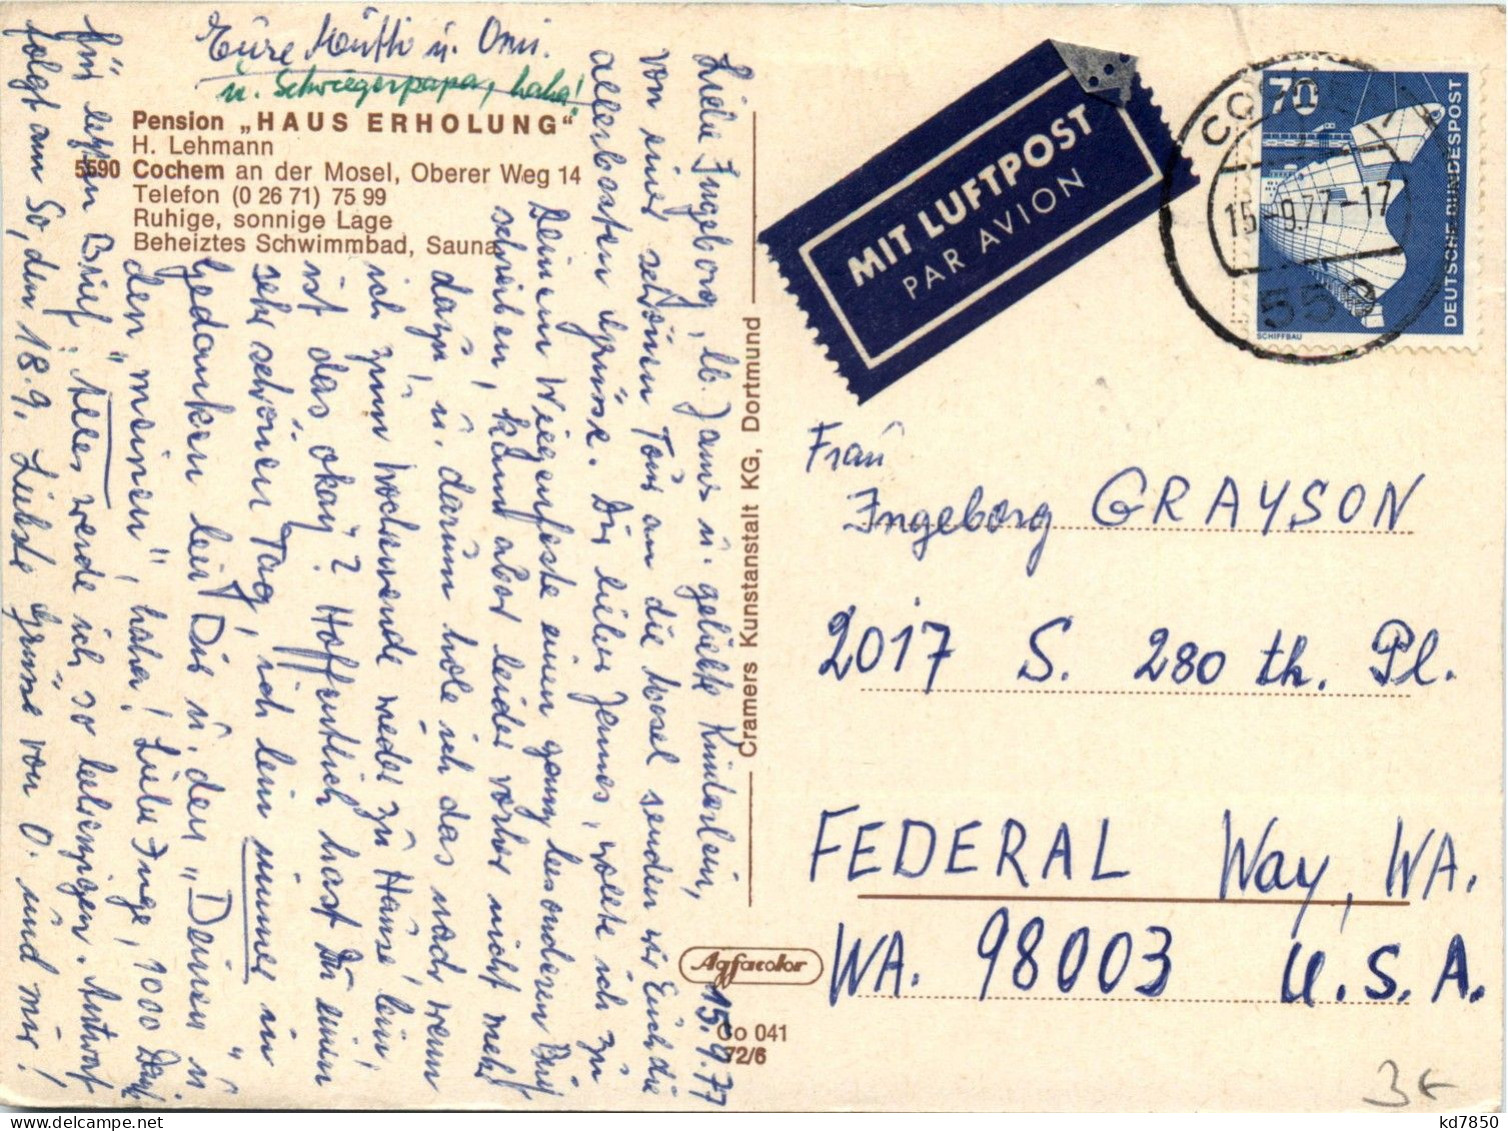 Eure Mutti u. Omi.
u. Schwiegerpapa, haha!
Pension „HAUS ERHOLUNG“
H. Lehmann
5590 Cochem an der Mosel, Oberer Weg 14
Telefon (0 26 71) 75 99
Ruhige, sonnige Lage
Beheiztes Schwimmbad, Sauna
15.9.77
Liebe Ingeborg, lb. James u. geliebte Kinderlein,
von einer schönen Tour an die Mosel senden wir Euch die
allerbesten Grüsse. Dir, liebe Jennes, wollte ich zu
Deinem Wiegenfeste einen ganz besonderen Brief
schreiben, kam aber leider vorher nicht mehr
dazu, u. darum hole ich das nach, wenn
ich zum Wochenende wieder zu Hause bin,
ist das okay? Hoffentlich hast Du einen
sehr schönen Tag, ich bin immer in
Gedanken bei Dir u. den „Deinen“ u
den „meinen“, haha! Liebe Inge, 1000 Dank
für letzten Brief, Alles werde ich so beherzigen. Antwort
folgt am So, den 18.9. Liebste Grüsse von O. und mir!
Cramers Kunstanstalt KG, Dortmund
Agfacolor
Co 041
72/6
MIT LUFTPOST
PAR AVION
70
DEUTSCHE BUNDESPOST
SCHIFFBAU
15.-9.77-17
559
Frau
Ingeborg GRAYSON
2017 S. 280 th. Pl.
FEDERAL Way, WA.
WA. 98003 U.S.A.
3€
kd7850